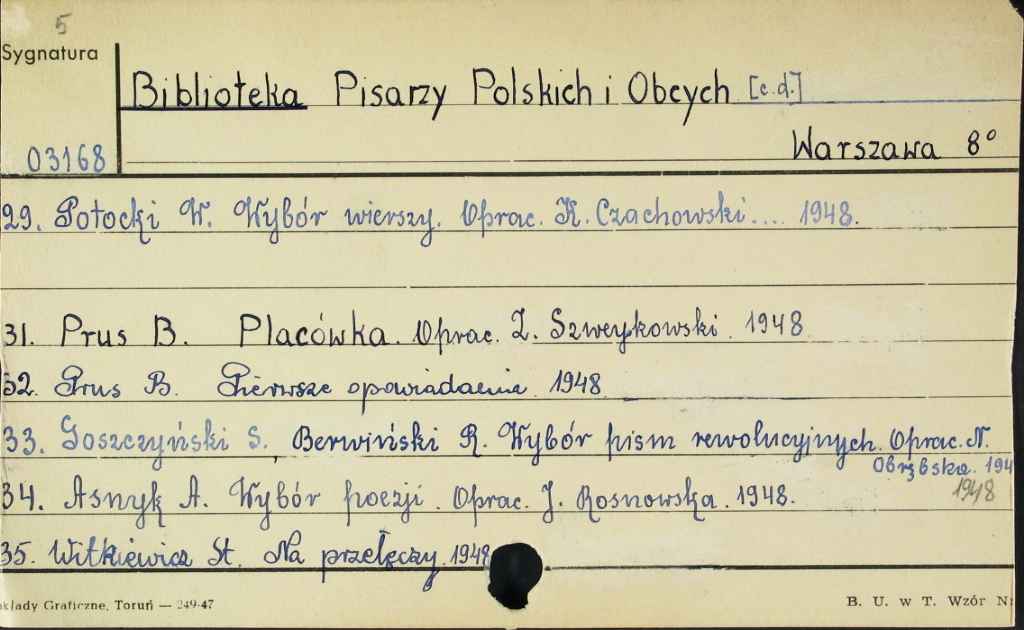 5
Sygnatura
Biblioteka Pisarzy Polskich i Obcych [c.d.]
03168
Warszawa 8°
29. Potocki W. Wybór wierszy. Oprac. K. Czachowski.... 1948.
31. Prus B. Placówka. Oprac. Z. Szweykowski. 1948
32. Prus B. Pierwsze opowiadania 1948
33. Goszczyński S., Berwiński R. Wybór pism rewolucyjnych. Oprac. N.
Obrębska. 194
1948
34. Asnyk A. Wybór poezji. Oprac. J. Rosnowska. 1948.
35. Witkiewicz St. Na przełęczy. 1948
kłady Graficzne, Toruń — 249-47
B. U. w T. Wzór N